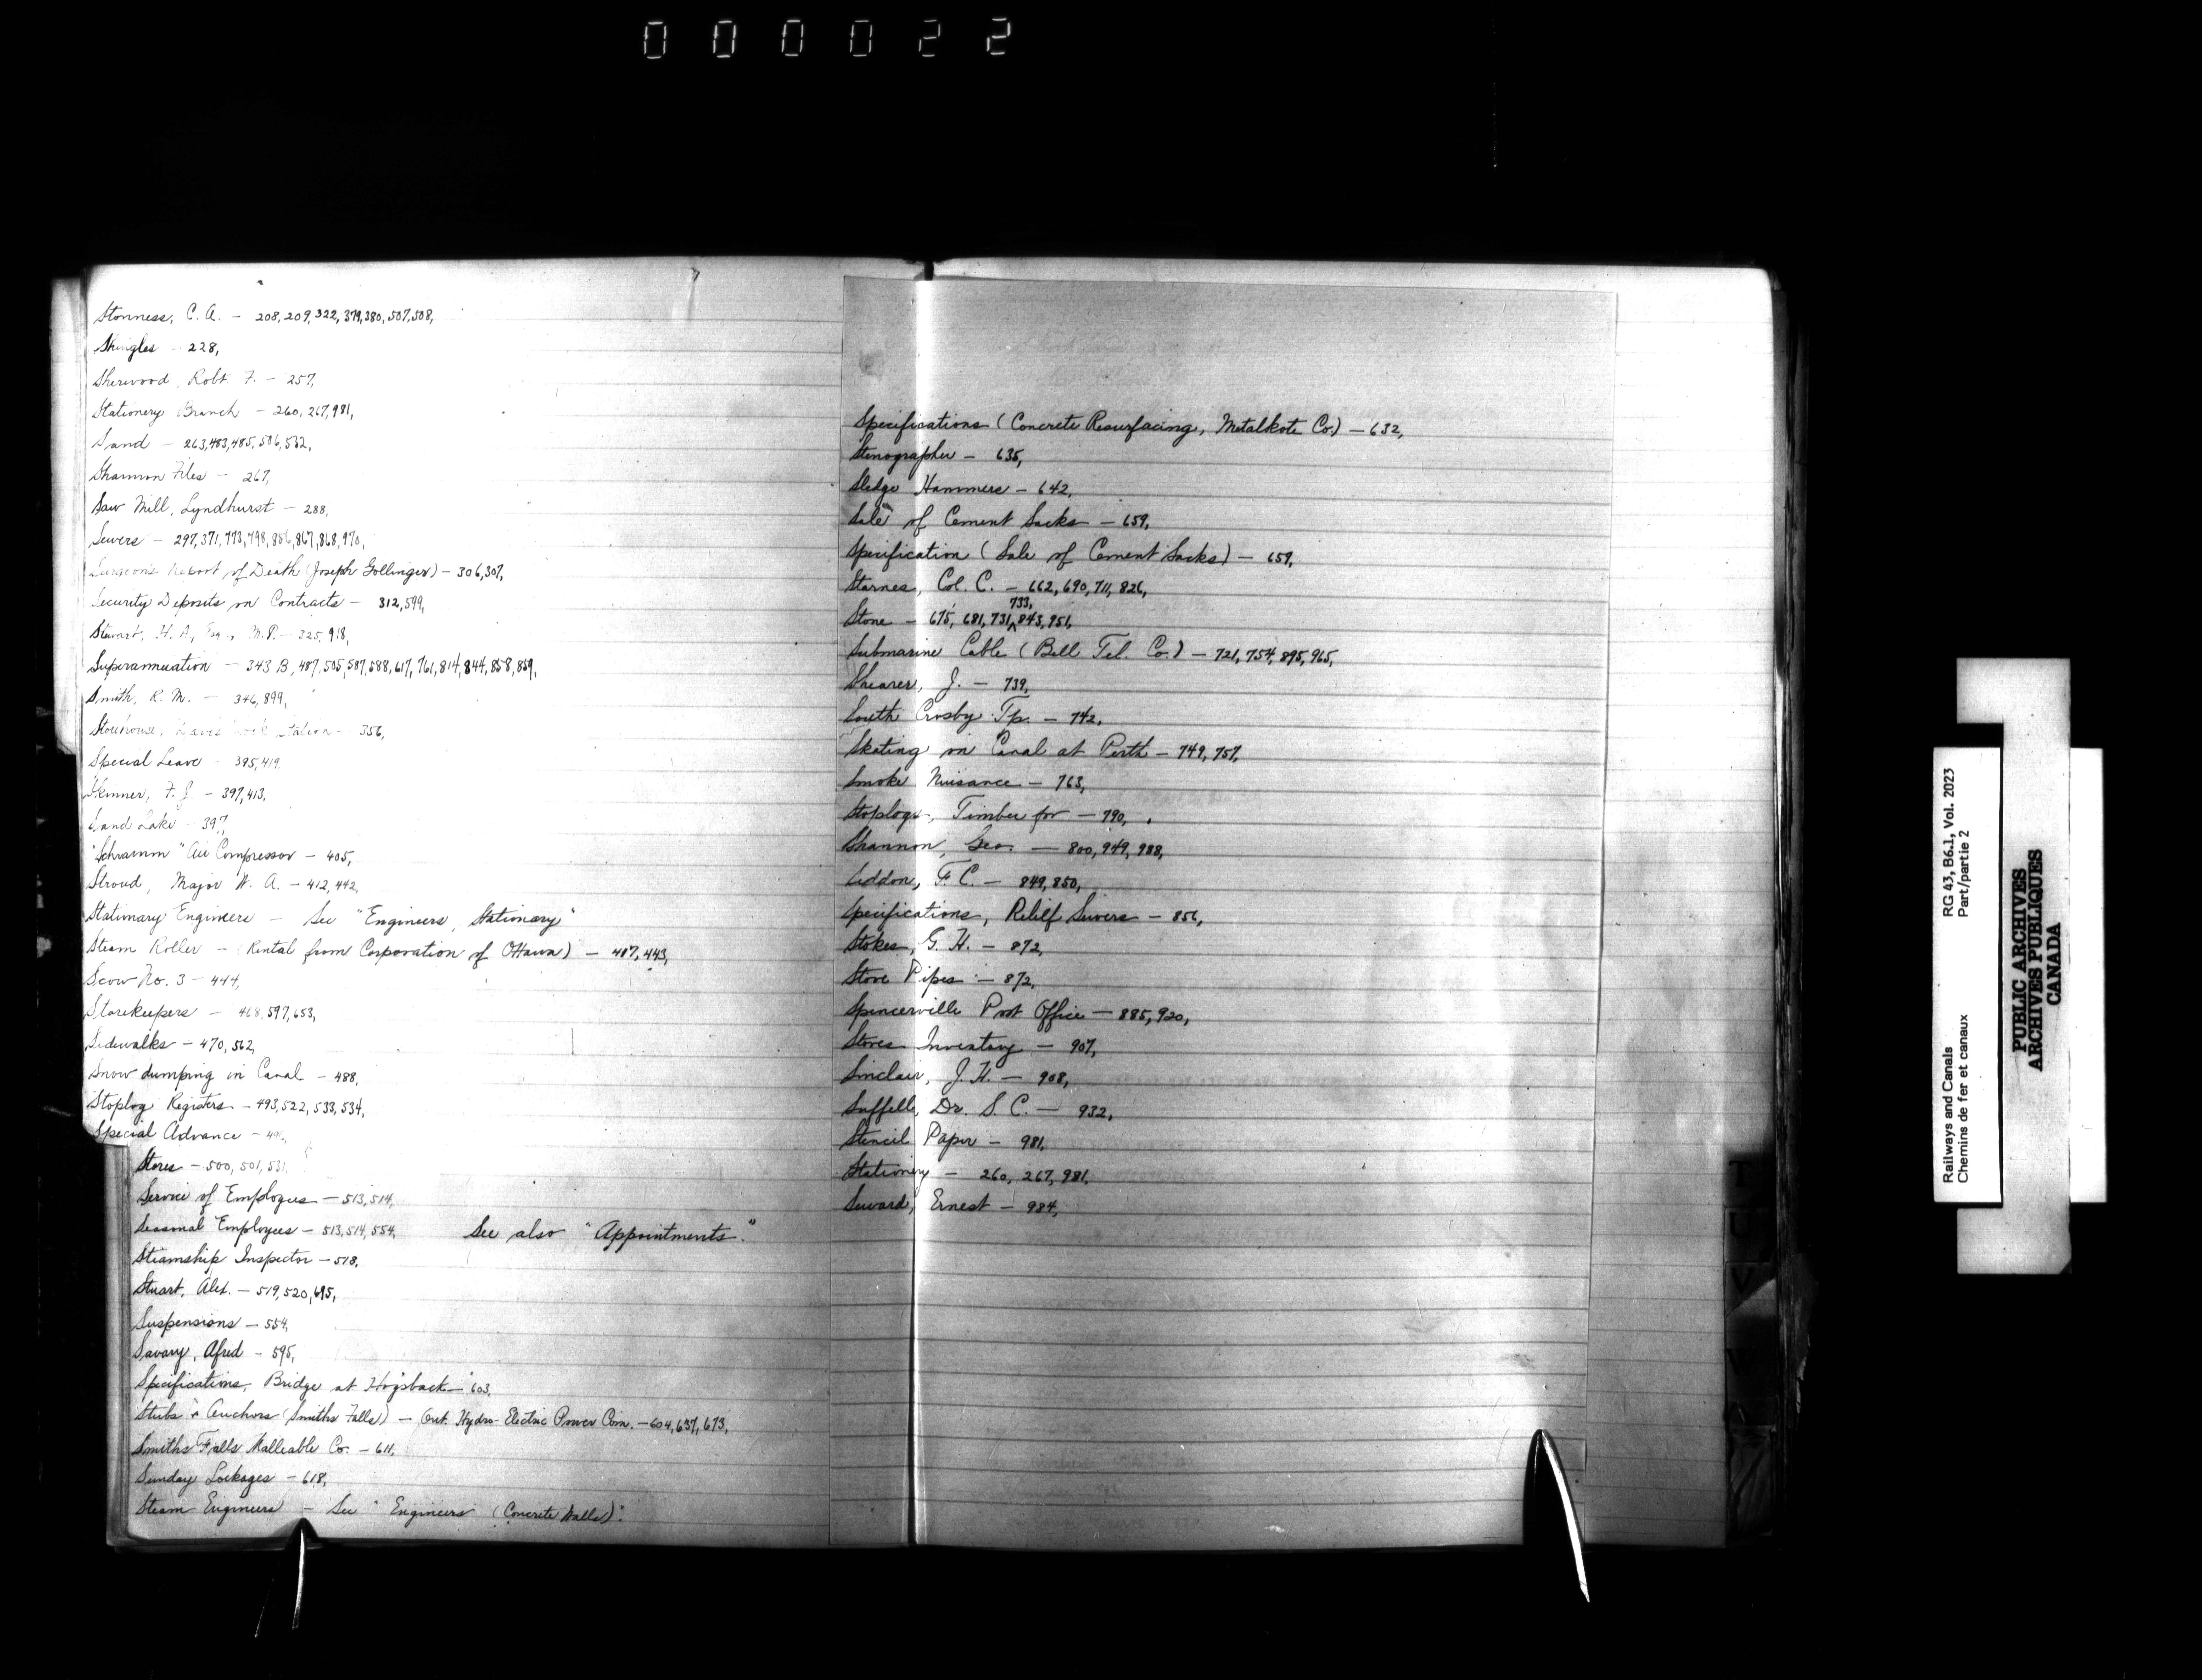 000022
Stonness, C. A. - 208, 209, 322, 379, 380, 507, 508,
Shingles - 228,
Sherwood, Robt. F. - 257,
Stationery Branch - 260, 267, 981,
Sand - 263, 483, 485, 506, 532,
Shannon Files - 267,
Saw Mill, Lyndhurst - 288,
Sewers - 297, 371, 773, 798, 856, 867, 868, 970,
Surgeon's Report of Death (Joseph Gollinger) - 306, 307,
Security Deposits on Contracts - 312, 599,
Stewart, H. A., Esq., M.P. - 325, 918,
Superannuation - 343 B, 487, 505, 587, 588, 617, 761, 814, 844, 858, 859,
Smith, R. M. - 346, 899,
Storehouse, Davis Lock Station - 356,
Special Leave - 395, 419,
Skinner, F. J. - 397, 413,
Sand Lake - 397,
"Schramm" Air Compressor - 405,
Stroud, Major W. A. - 412, 442,
Stationary Engineers - See "Engineers, Stationary"
Steam Roller - (Rental from Corporation of Ottawa) - 417, 443,
Scow No. 3 - 444,
Storekeepers - 468, 597, 653,
Sidewalks - 470, 562,
Snow dumping in Canal - 488,
Stoplog Registers - 493, 522, 533, 534,
Special Advance -
Stores - 500, 501, 531,
Service of Employees - 513, 514,
Seasonal Employees - 513, 514, 554, See also "Appointments."
Steamship Inspector - 518,
Stuart, Alex. - 519, 520, 695,
Suspensions - 554,
Savary, Afred - 595,
Specifications, Bridge at Hogsback - 603,
Stubs & Anchors (Smiths Falls) - Ont. Hydro-Electric Power Com. - 604, 637, 673,
Smiths Falls Malleable Co. - 611,
Sunday Lockages - 618,
Steam Engineers - See "Engineers (Concrete Walls)".
Specifications (Concrete Resurfacing, Metalkote Co.) - 632,
Stenographer - 635,
Sledge Hammers - 642,
Sale of Cement Sacks - 659,
Specification (Sale of Cement Sacks) - 659,
Starnes, Col. C. - 662, 690, 711, 826,
Stone - 675, 681, 731, 733, 843, 951,
Submarine Cable (Bell Tel. Co.) - 721, 754, 895, 965,
Shearer, J. - 739,
South Crosby Tp. - 742,
Skating on Canal at Perth - 749, 757,
Smoke Nuisance - 763,
Stoplogs, Timber for - 790,
Shannon, Geo. - 800, 949, 988,
Siddon, F. C. - 849, 850,
Specifications, Relief Sewers - 856,
Stokes, G. H. - 872,
Stove Pipes - 872,
Spencerville Post Office - 885, 920,
Stores Inventory - 907,
Sinclair, J. H. - 908,
Suffell, Dr. S. C. - 932,
Stencil Paper - 981,
Stationery - 260, 267, 981,
Seward, Ernest - 984,
T
U
V
W
Railways and Canals
Chemins de fer et canaux
RG 43, B6.1, Vol. 2023
Part/partie 2
PUBLIC ARCHIVES
ARCHIVES PUBLIQUES
CANADA